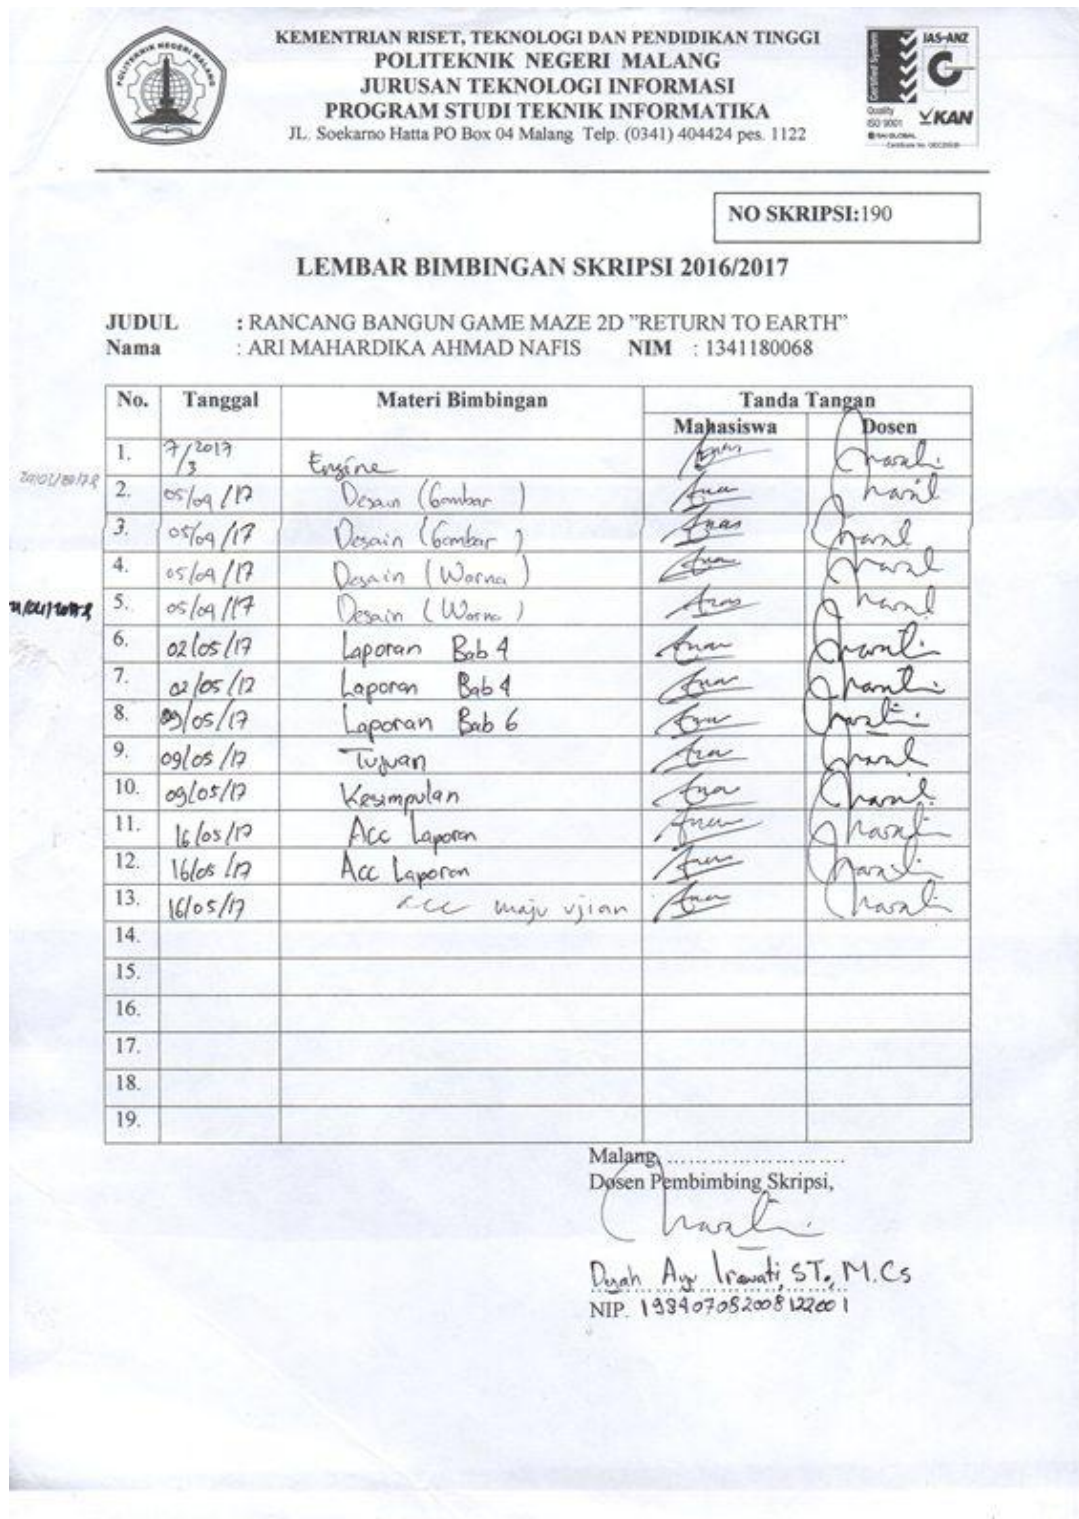 KEMENTRIAN RISET, TEKNOLOGI DAN PENDIDIKAN TINGGI
POLITEKNIK NEGERI MALANG
JURUSAN TEKNOLOGI INFORMASI
PROGRAM STUDI TEKNIK INFORMATIKA
JL. Soekarno Hatta PO Box 04 Malang Telp. (0341) 404424 pes. 1122
POLITEKNIK NEGERI MALANG
Certified System
IAS-ANZ
Quality
ISO 9001
KAN
SAI GLOBAL
NO SKRIPSI:190
LEMBAR BIMBINGAN SKRIPSI 2016/2017
JUDUL : RANCANG BANGUN GAME MAZE 2D ”RETURN TO EARTH”
Nama : ARI MAHARDIKA AHMAD NAFIS NIM : 1341180068
No. Tanggal Materi Bimbingan Tanda Tangan
Mahasiswa Dosen
1. 7/3 2017 Engine
2. 05/04/17 Desain (Gambar)
3. 05/04/17 Desain (Gambar)
4. 05/04/17 Desain (Warna)
5. 05/04/17 Desain (Warna)
6. 02/05/17 Laporan Bab 4
7. 02/05/17 Laporan Bab 4
8. 09/05/17 Laporan Bab 6
9. 09/05/17 Tujuan
10. 09/05/17 Kesimpulan
11. 16/05/17 Acc Laporan
12. 16/05/17 Acc Laporan
13. 16/05/17 acc maju ujian
14.
15.
16.
17.
18.
19.
Malang, ..........................
Dosen Pembimbing Skripsi,
Dyah Ayu Irawati, ST., M.Cs
NIP. 198407082008122001